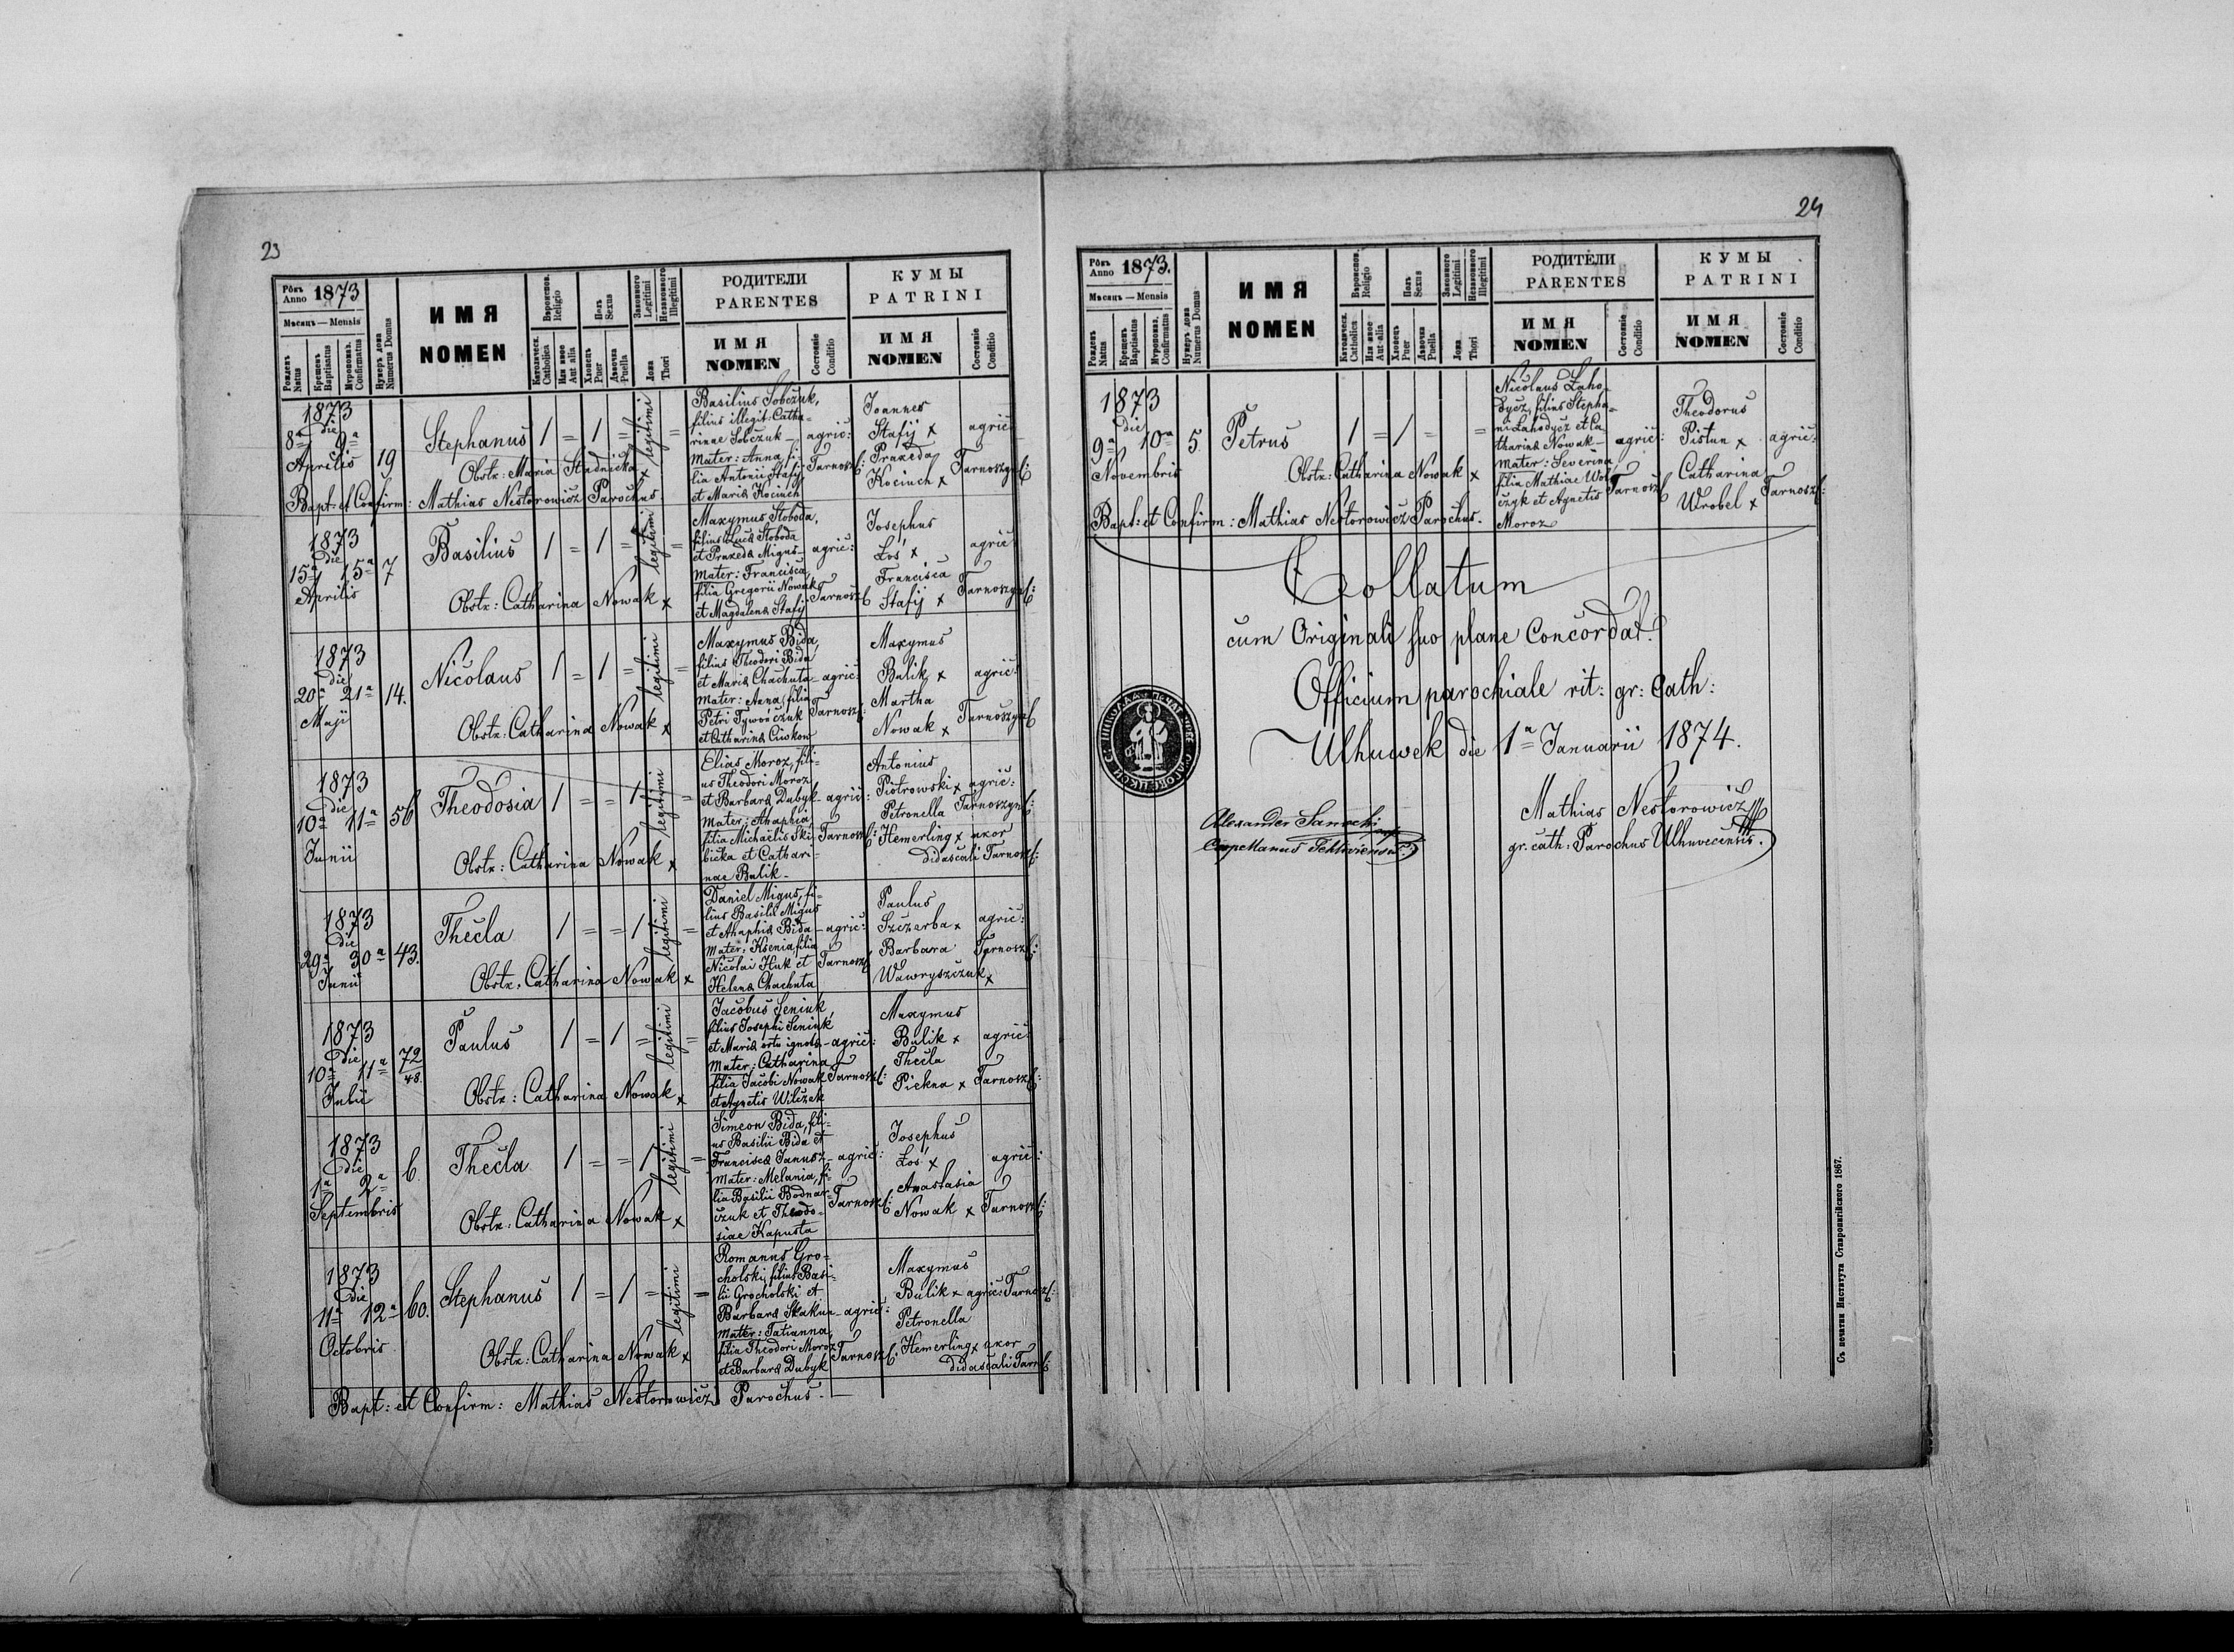 23
Рôкъ Anno 1873
Мѣсяцъ — Mensis
Рожденъ Natus
Крещенъ Baptisatus
Мѵропомаз. Confirmatus
Нумеръ дома Numerus Domus
ИМЯ
NOMEN
Вѣроиспов. Religio
Католическ. Catholica
Или иное Aut alia
Полъ Sexus
Хлопецъ Puer
Дѣвочка Puella
Законного Legitimi
Незаконного Illegitimi
Ложа Thori
РОДИТЕЛИ
PARENTES
ИМЯ
NOMEN
Состояніе Conditio
КУМЫ
PATRINI
ИМЯ
NOMEN
Состояніе Conditio
1873
die
8ª 9ª
Aprilis
19
Stephanus
1 = 1 = legitimi =
Obstx: Maria Stadnicka x
Basilius Sobczuk,
filius illegit: Catha-
rinae Sobczuk - agric:
Mater: Anna, fi-
lia Antonii Stafij Tarnosz:
et Maria Kociuch
Joannes
Stafij x agric:
Praxeda
Kociuch x Tarnoszyn:
Bapt: et Confirm: Mathias Nestorowicz Parochus.
1873
die
15ª 15ª
Aprilis
7
Basilius
1 = 1 = legitimi =
Obstx: Catharina Nowak x
Maxymus Słoboda,
filius Luca Słoboda
et Praxeda Migus - agric:
Mater: Francisca,
filia Gregorii Nowak
et Magdalena Stafij Tarnosz:
Josephus
Łoś x agric:
Francisca
Stafij x Tarnoszyn:
1873
die
20ª 21ª
Maji
14.
Nicolaus
1 = 1 = legitimi =
Obstx: Catharina Nowak x
Maxymus Bida,
filius Theodori Bida
et Maria Chachuta - agric:
Mater: Anna, filia
Petri Tywończuk Tarnosz:
et Catharina Ciwkow
Maxymus
Bulik x agric:
Martha
Nowak x Tarnoszyn:
1873
die
10ª 11ª
Junii
56
Theodosia
1 = = 1 legitimi =
Obstx: Catharina Nowak x
Elias Moroz, fili-
us Theodori Moroz
et Barbara Dubyk - agric:
Mater: Ahaphia,
filia Michaëlis Ski- Tarnosz:
bicka et Cathari-
nae Bulik -
Antonius
Piotrowski x agric:
Petronella Tarnoszyn:
Hemerling x uxor
didascali Tarnosz:
1873
die
29ª 30ª
Junii
43.
Thecla
1 = = 1 legitimi =
Obstx: Catharina Nowak x
Daniel Migus, fi-
lius Basilii Migus
et Ahaphia Bida - agric:
Mater: Ksenia, filia
Nicolai Huk et Tarnosz:
Helena Chachuta
Paulus
Szczerba x agric:
Barbara Tarnosz:
Wawryszczuk x
1873
die
10ª 11ª
Julii
72
48.
Paulus
1 = 1 = legitimi =
Obstx: Catharina Nowak x
Jacobus Seniuk,
filius Josephi Seniuk
et Maria ortu ignota - agric:
Mater: Catharina,
filia Jacobi Nowak Tarnosz:
et Agnetis Wilczek
Maxymus
Bulik x agric:
Thecla
Piekna x Tarnosz:
1873
die
1ª 2ª
Septembris
6.
Thecla
1 = = 1 legitimi =
Obstx: Catharina Nowak x
Simeon Bida, fili-
us Basilii Bida et
Francisca Janusz - agric:
Mater: Melania, fi-
lia Basilii Bodnar- Tarnosz:
czuk et Theodo-
siae Kapusta
Josephus
Łoś x agric:
Anastasia
Nowak x Tarnosz:
1873
die
11ª 12ª
Octobris
60.
Stephanus
1 = 1 = legitimi =
Obstx: Catharina Nowak x
Romanus Gro-
cholski, filius Basi-
lii Grocholski et
Barbara Skakun - agric:
Mater: Tatianna,
filia Theodori Moroz
et Barbara Dubyk Tarnosz:
Maxymus
Bulik x agric: Tarnosz:
Petronella
Hemerling x uxor
didascali Tarn:
Bapt: et Confirm: Mathias Nestorowicz Parochus. -
24
Рôкъ Anno 1873.
Мѣсяцъ — Mensis
Рожденъ Natus
Крещенъ Baptisatus
Мѵропомаз. Confirmatus
Нумеръ дома Numerus Domus
ИМЯ
NOMEN
Вѣроиспов. Religio
Католическ. Catholica
Или иное Aut alia
Полъ Sexus
Хлопецъ Puer
Дѣвочка Puella
Законного Legitimi
Незаконного Illegitimi
Ложа Thori
РОДИТЕЛИ
PARENTES
ИМЯ
NOMEN
Состояніе Conditio
КУМЫ
PATRINI
ИМЯ
NOMEN
Состояніе Conditio
1873
die
9ª 10ª
Novembris
5
Petrus
1 = 1 = =
Obstx: Catharina Nowak x
Nicolaus Łaho-
dycz, filius Stepha-
ni Łahodycz et Ca-
tharina Nowak - agric:
Mater: Severina,
filia Mathiae Wol-
czyk et Agnetis Tarnosz:
Moroz
Theodorus
Pistun x agric:
Catharina
Wrobel x Tarnosz:
Bapt: et Confirm: Mathias Nestorowicz Parochus.
Collatum
cum Originali suo plane Concordat.
Officium parochiale rit: gr: Cath:
Ulhuwek die 1ª Januarii 1874.
Alexander Sanocki
Capellanus
Mathias Nestorowicz
gr. cath: Parochus Ulhuvecensis.
Съ печатни Института Ставропигійского 1867.